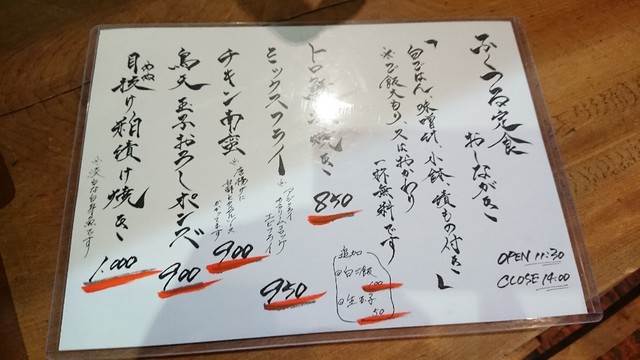 ふくつる定食
おしながき
「白ごはん、味噌汁、小鉢、漬もの付き」
※ご飯大もり又はおかわり
一杯無料です
焼き
850
ミックスフライ
※アジフライ
エビフライ
950
チキン南蛮
900
鳥天玉子おろしポンズ
900
目抜け粕漬け焼き
ぬ
※淡白な白身魚です
1.000
追加
白ご飯
100
生玉子
50
OPEN 11:30
CLOSE 14:00